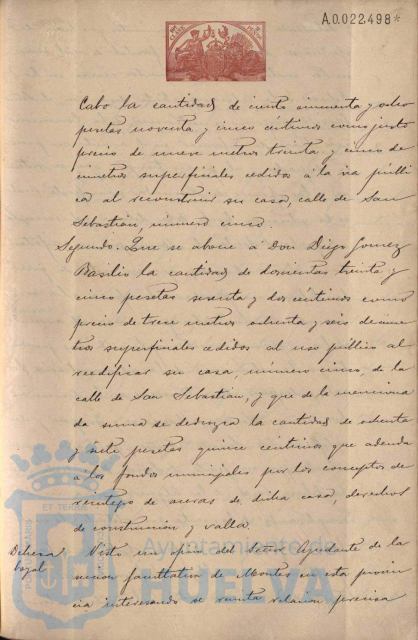 A.0.022,498*
Cabo la cantidad de ciento cincuenta y ocho
pesetas noventa y cinco céntimos como justo
precio de nueve metros treinta y cinco de
címetros superficiales cedidos á la via públi
ca al reconstruir su casa, calle de San
Sebastian, número cinco.
Segundo. Que se abone á Don Diego Gomez
Basilio la cantidad de doscientas treinta y
cinco pesetas sesenta y dos céntimos como
precio de trece metros ochenta y seis decíme
tros superficiales cedidos al uso público al
reedificar su casa, número cinco, de la
calle de San Sebastian, y que de la menciona
da suma se deduzca la cantidad de ochenta
y siete pesetas quince céntimos que adeuda
á los fondos municipales por los conceptos de
reintegro de aceras de dicha casa, derechos
de construcción y valla.
Dehesa
Visto un oficio del Señor Ayudante de la
sección facultativa de Montes en esta provin
cia interesando se remita relacion precisa
Ayuntamiento de
HUELVA